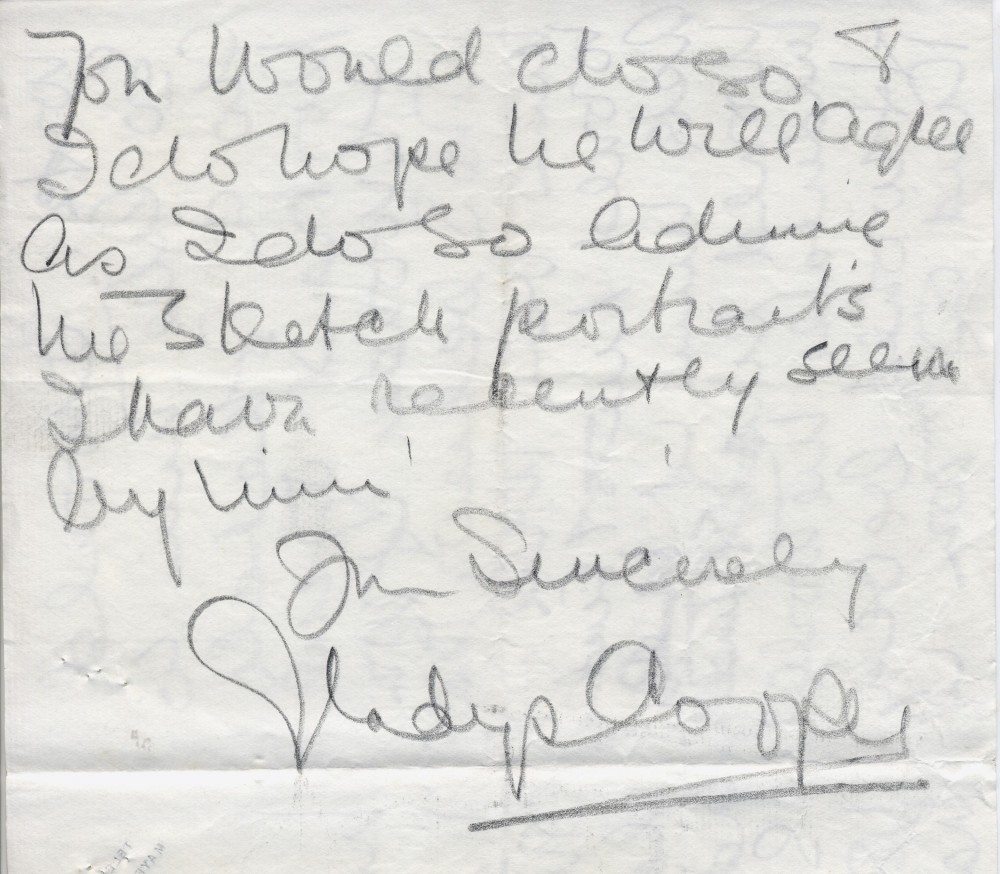 You would do so &
I do hope he will agree
as I do so admire
the sketch portraits
I have recently seen
by him
Yrs Sincerely
Gladys Cooper